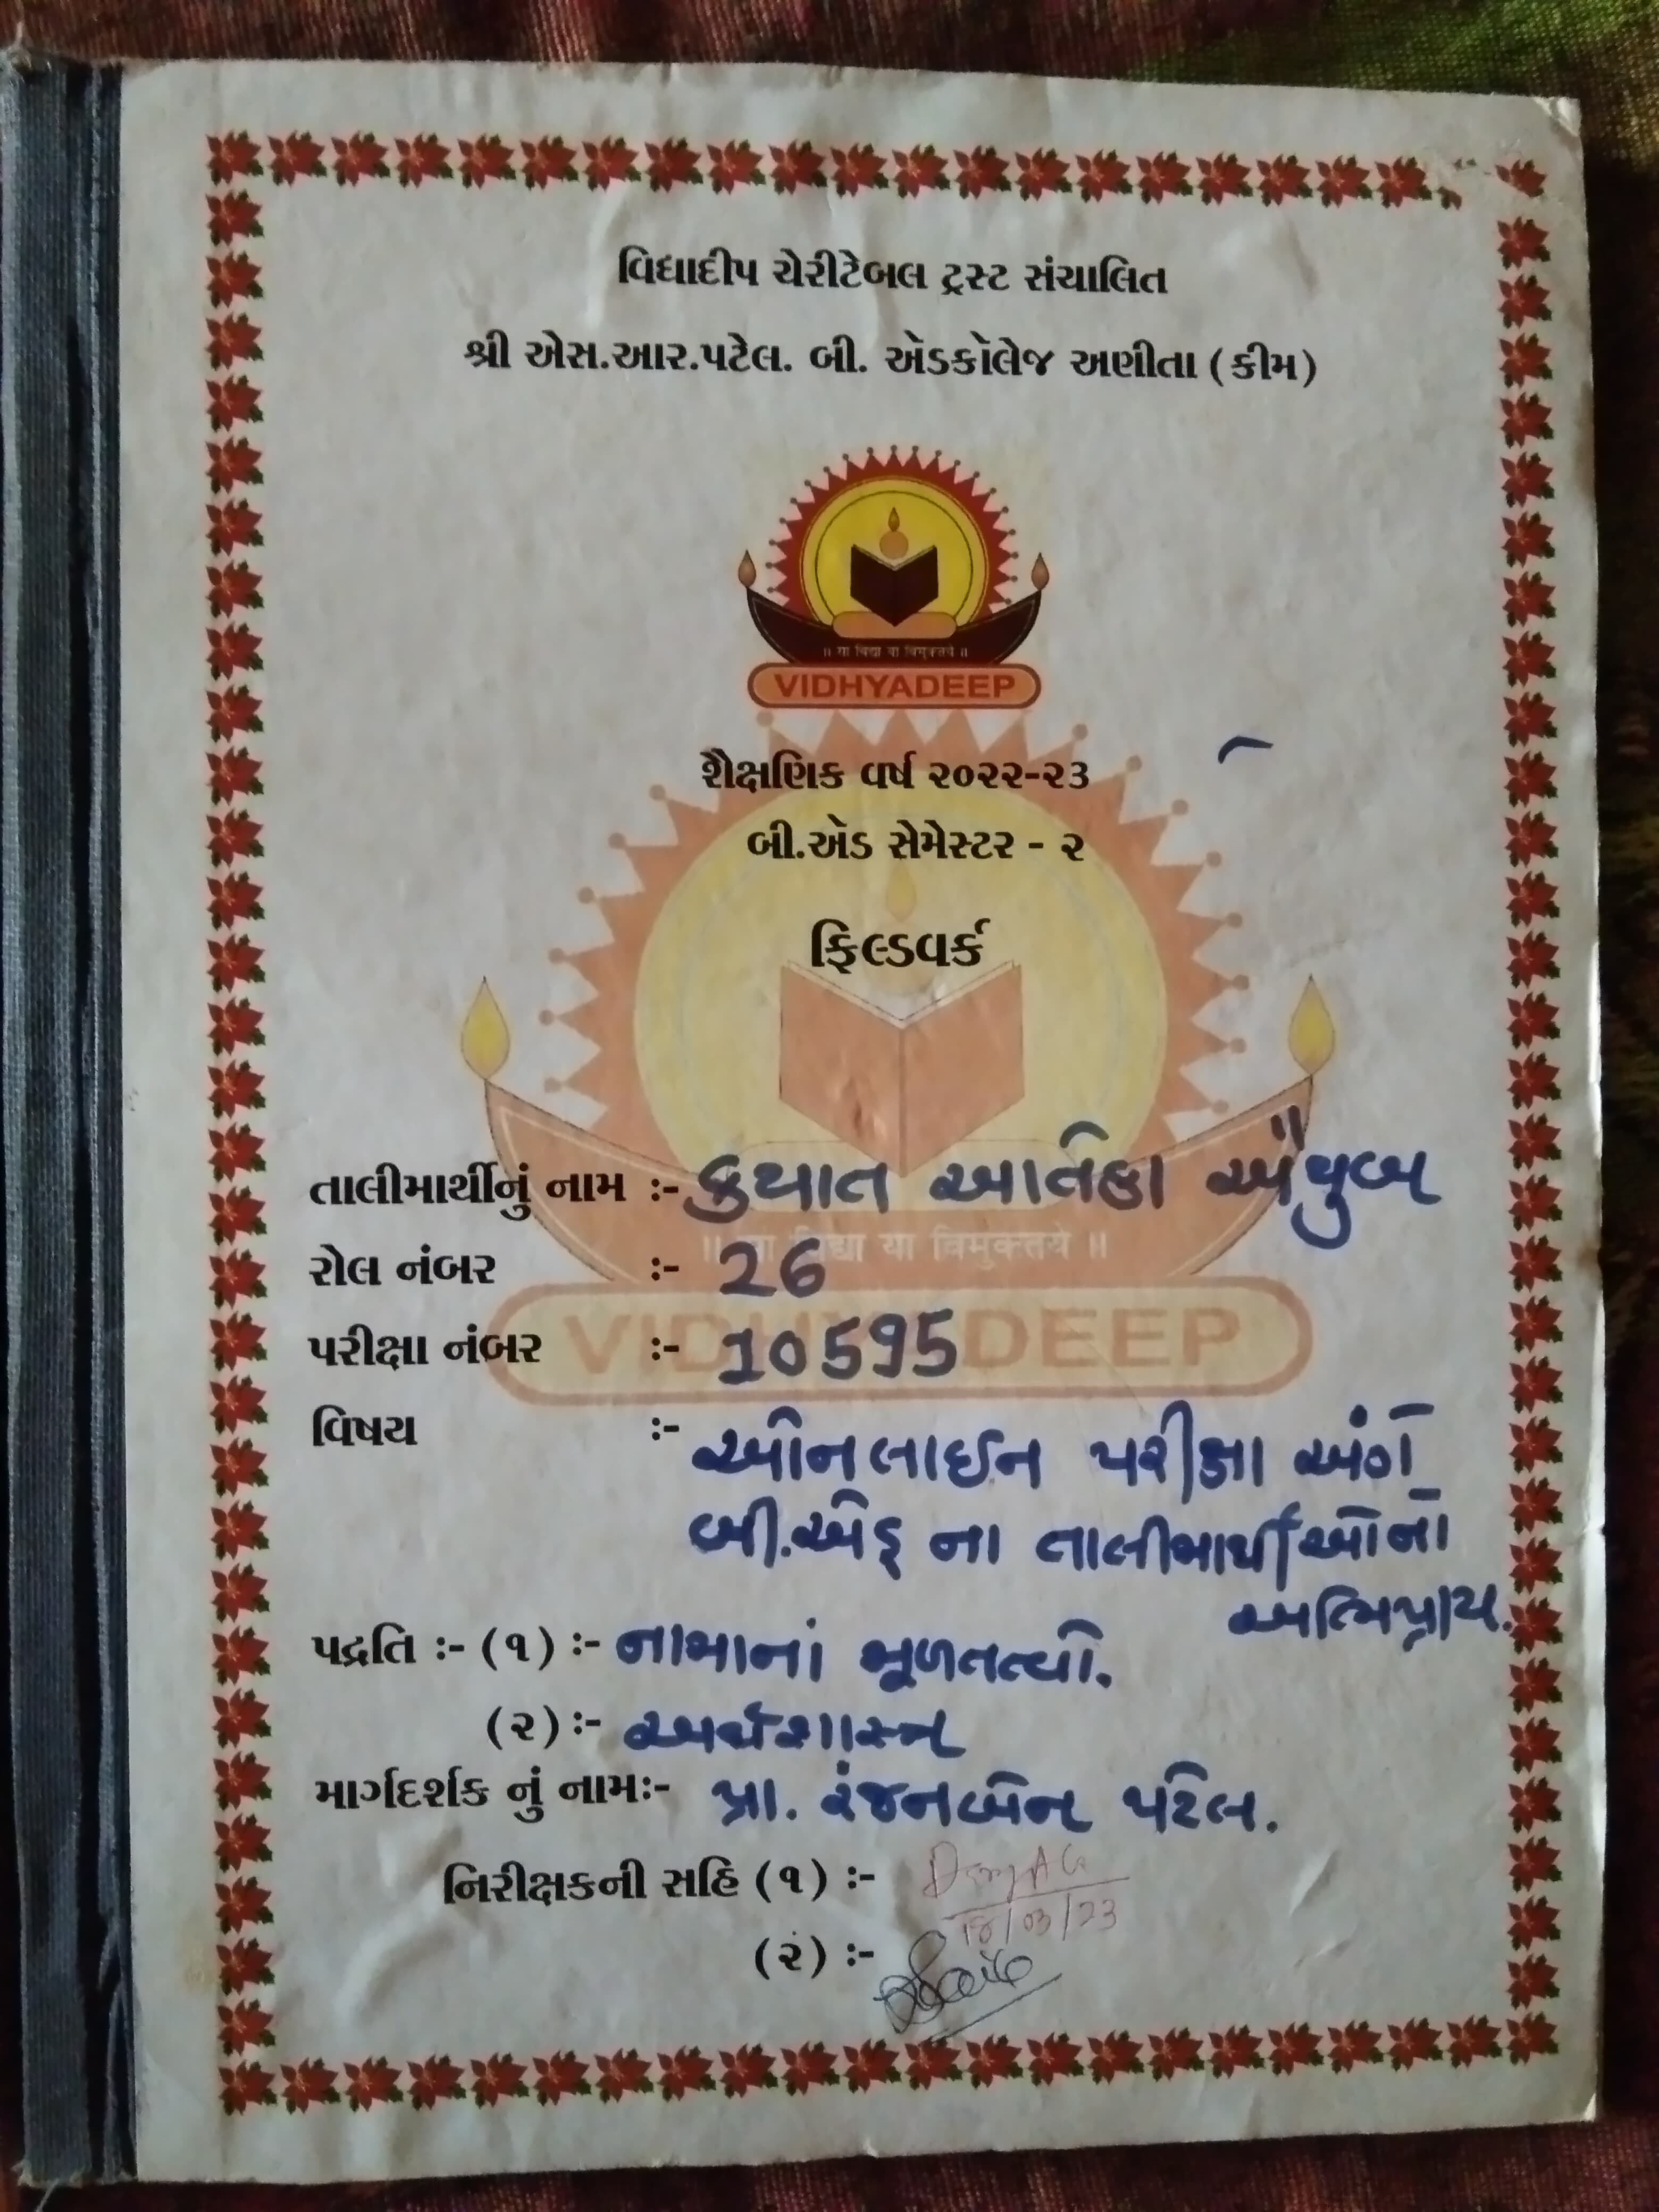 વિદ્યાદીપ ચેરીટેબલ ટ્રસ્ટ સંચાલિત
શ્રી એસ.આર.પટેલ. બી. એડકોલેજ અણીતા (કીમ)
॥ या विद्या या विमुक्तये ॥
VIDHYADEEP
શૈક્ષણિક વર્ષ ૨૦૨૨-૨૩
બી.એડ સેમેસ્ટર - ૨
ફિલ્ડવર્ક
તાલીમાર્થીનું નામ :- કુથાત આતેકા ઐયુબ
॥ या विद्या या विमुक्तये ॥
રોલ નંબર :- 26
VIDHYADEEP
પરીક્ષા નંબર :- 10595
વિષય :- ઓનલાઈન પરીક્ષા અંગે
બી.એડ્ ના તાલીમાર્થીઓનો
અભિપ્રાય.
પદ્રતિ :- (૧) :- નામાનાં મૂળતત્વો.
(૨) :- અર્થશાસ્ત્ર
માર્ગદર્શક નું નામ:- પ્રા. રંજનબેન પટેલ.
નિરીક્ષકની સહિ (૧) :-
18/03/23
(૨) :-